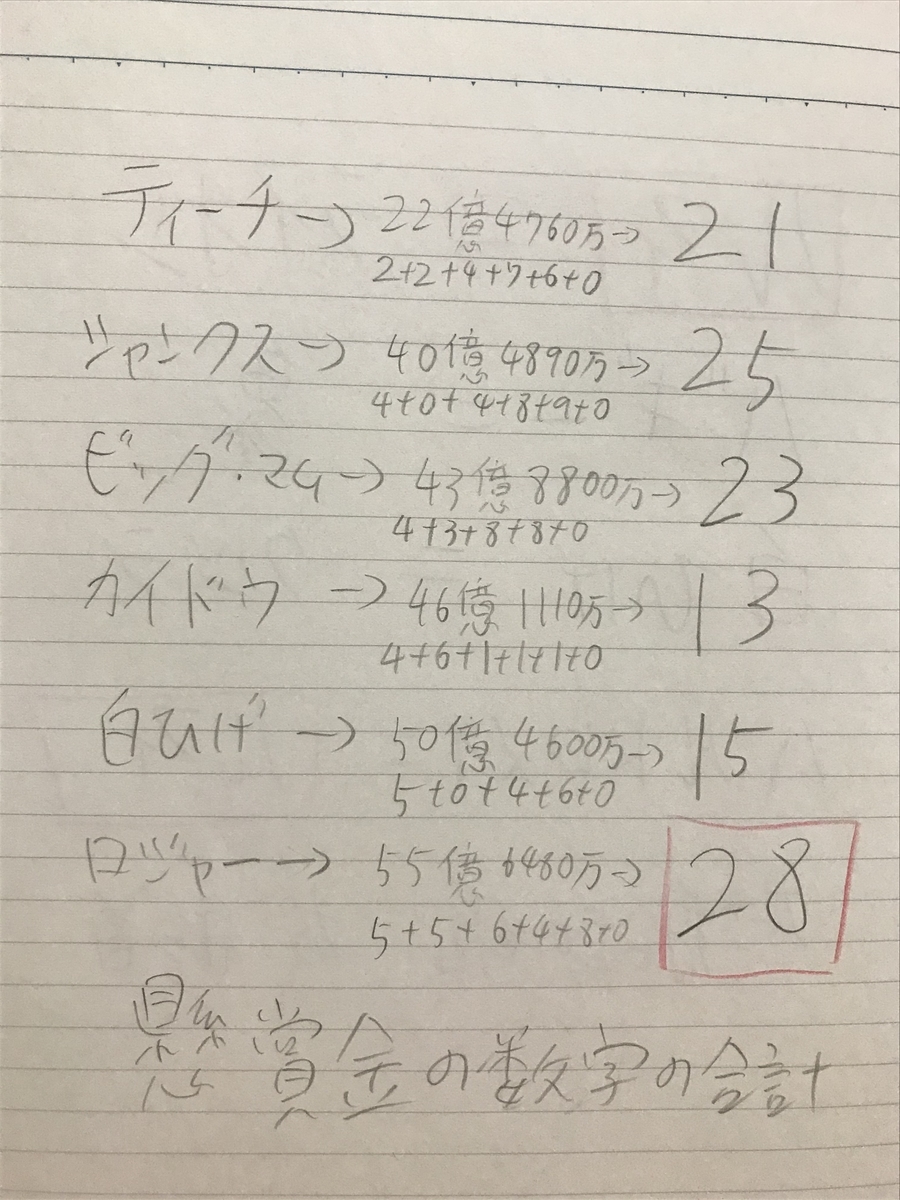 ティーチ→ 22億4760万→ 21
2+2+4+7+6+0
シャンクス→ 40億4890万→ 25
4+0+4+8+9+0
ビッグ・マム→ 43億8800万→ 23
4+3+8+8+0
カイドウ → 46億1110万→ 13
4+6+1+1+1+0
白ひげ → 50億4600万→ 15
5+0+4+6+0
ロジャー→ 55億6480万→ 28
5+5+6+4+8+0
懸賞金の数字の合計